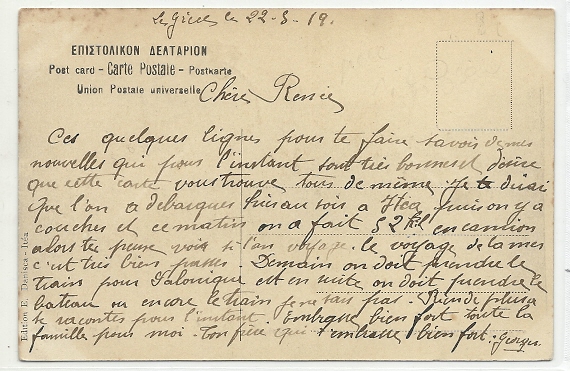 La Grèce le 22-8-19.
ΕΠΙΣΤΟΛΙΚΟΝ ΔΕΛΤΑΡΙΟΝ
Post card – Carte Postale – Postkarte
Union Postale universelle
Chère Renée
Ces quelques lignes pour te faire savoir de mes
nouvelles qui pour l'instant sont très bonnes et désire
que cette carte vous trouve tous de même. Je te dirai
que l'on a débarqués hier au soir à Itéa puis on y a
couchés et ce matin on a fait 52 Kil en camion
alors tu peux voir si l'on voyage. le voyage de la mer
c'est très bien passés Demain on doit prendre le
train pour Salonique et ensuite on doit prendre le
bateau ou encore le train je ne sais pas. Rien de plus a
te racontés pour l'instant Embrasse bien fort toute la
famille pour moi. Ton frère qui t'embrasse bien fort. Georges
Edition E. Darisca - Itéa